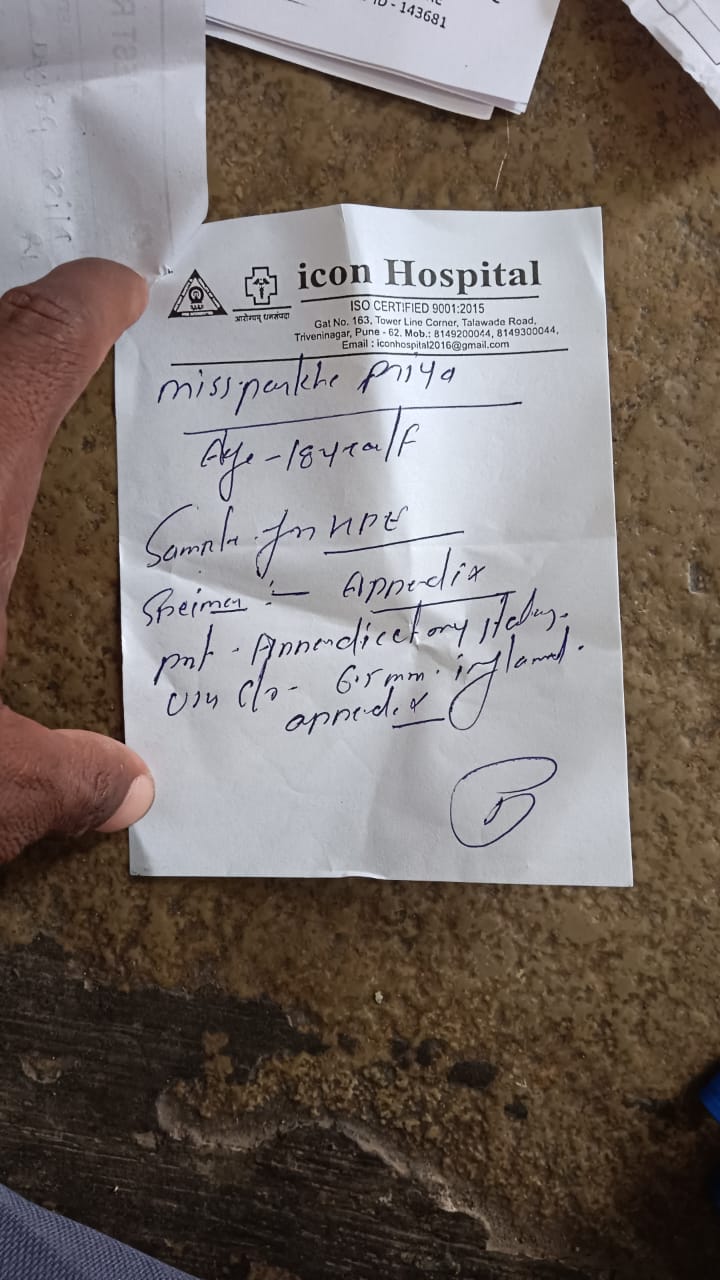 ID - 143681
icon Hospital
आरोग्यम् धनसंपदा
ISO CERTIFIED 9001:2015
Gat No. 163, Tower Line Corner, Talawade Road,
Triveninagar, Pune - 62. Mob.: 8149200044, 8149300044,
Email : iconhospital2016@gmail.com
Miss. Priya
Age - 18 year/F
Sample for HPE
Speimen :- Appendix
Appendicectomy
6.5 mm. inflamed.
appendix